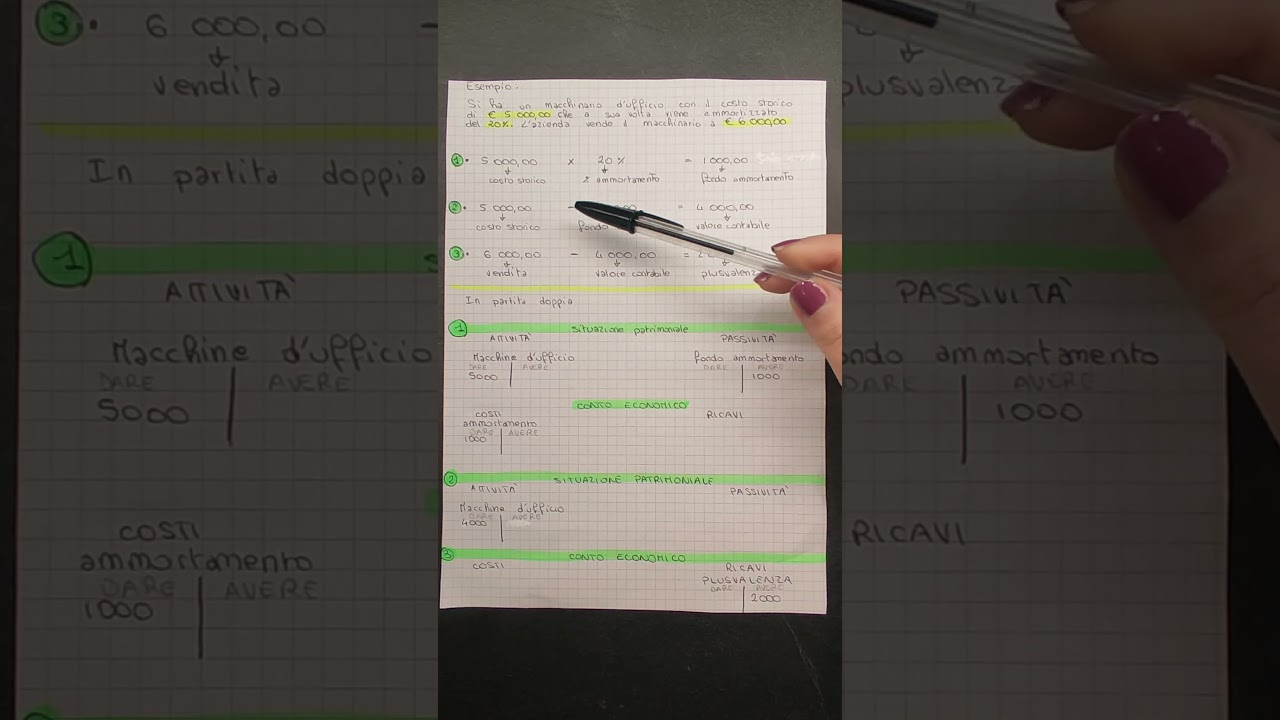 Esempio:
Si ha un macchinario d'ufficio con 1 costo storico
di € 5 000,00 che a sua volta viene ammortizzato
del 20%. L'azienda vende 1 macchinario a € 6 000,00
1 • 5 000,00 x 20 % = 1 000,00
costo storico % ammortamento fondo ammortamento
2 • 5 000,00 - = 4 000,00
costo storico fondo valore contabile
3 • 6 000,00 - 4 000,00 =
vendita valore contabile plusvalenz
In partita doppia
1 Situazione patrimoniale
ATTIVITÀ PASSIVITÀ
Macchine d'ufficio fondo ammortamento
DARE AVERE DARE AVERE
5000 1000
CONTO ECONOMICO
COSTI RICAVI
ammortamento
DARE AVERE
1000
2 SITUAZIONE PATRIMONIALE
ATTIVITÀ PASSIVITÀ
Macchine d'ufficio
DARE AVERE
4000
3 CONTO ECONOMICO
COSTI RICAVI
PLUSVALENZA
DARE AVERE
2000